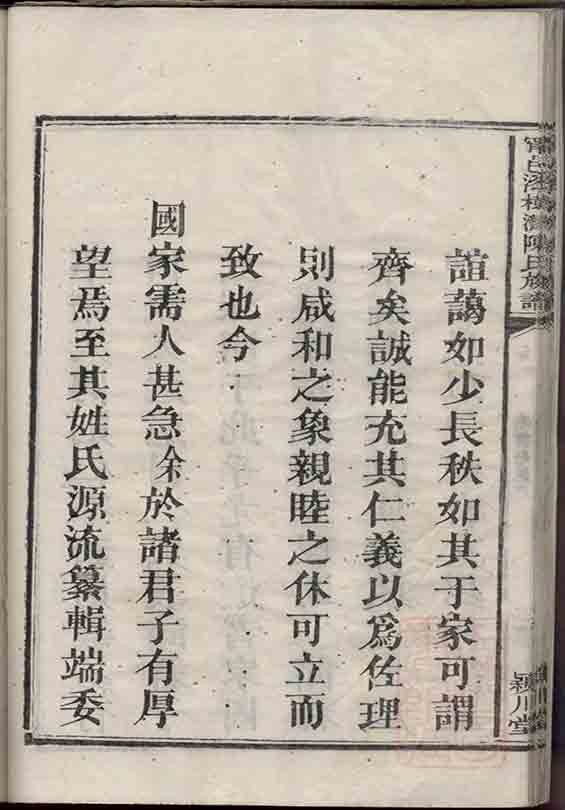 誼藹如少長秩如其于家可謂
齊矣誠能充其仁義以爲佐理
則咸和之象親睦之休可立而
致也今
國家需人甚急余於諸君子有厚
望焉至其姓氏源流纂輯端委
陳氏族譜
潁川堂